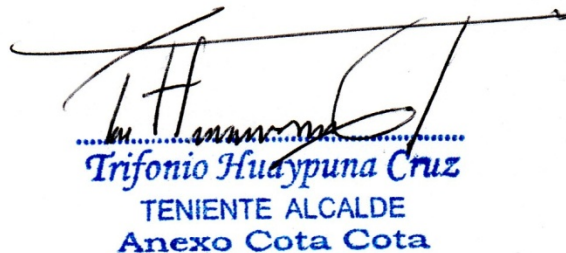 Trifonio Huaypuna Cruz
TENIENTE ALCALDE
Anexo Cota Cota